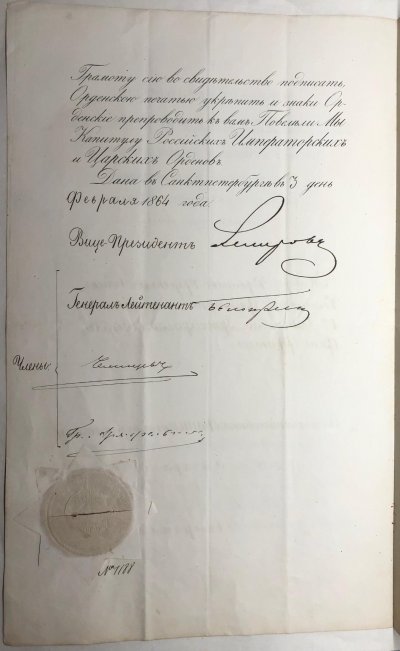 Грамоту сію во свидѣтельство подписать,
Орденскою печатью укрѣпить и знаки Ор-
денскіе препроводить къ вамъ, Повелѣли Мы
Капитулу Россійскихъ Императорскихъ
и Царскихъ Орденовъ.
Дана въ Санктпетербургѣ въ 3 день
Февраля 1864 года.
Вице-Президентъ
Генералъ Лейтенантъ
Члены:
Гр.
№ 1188